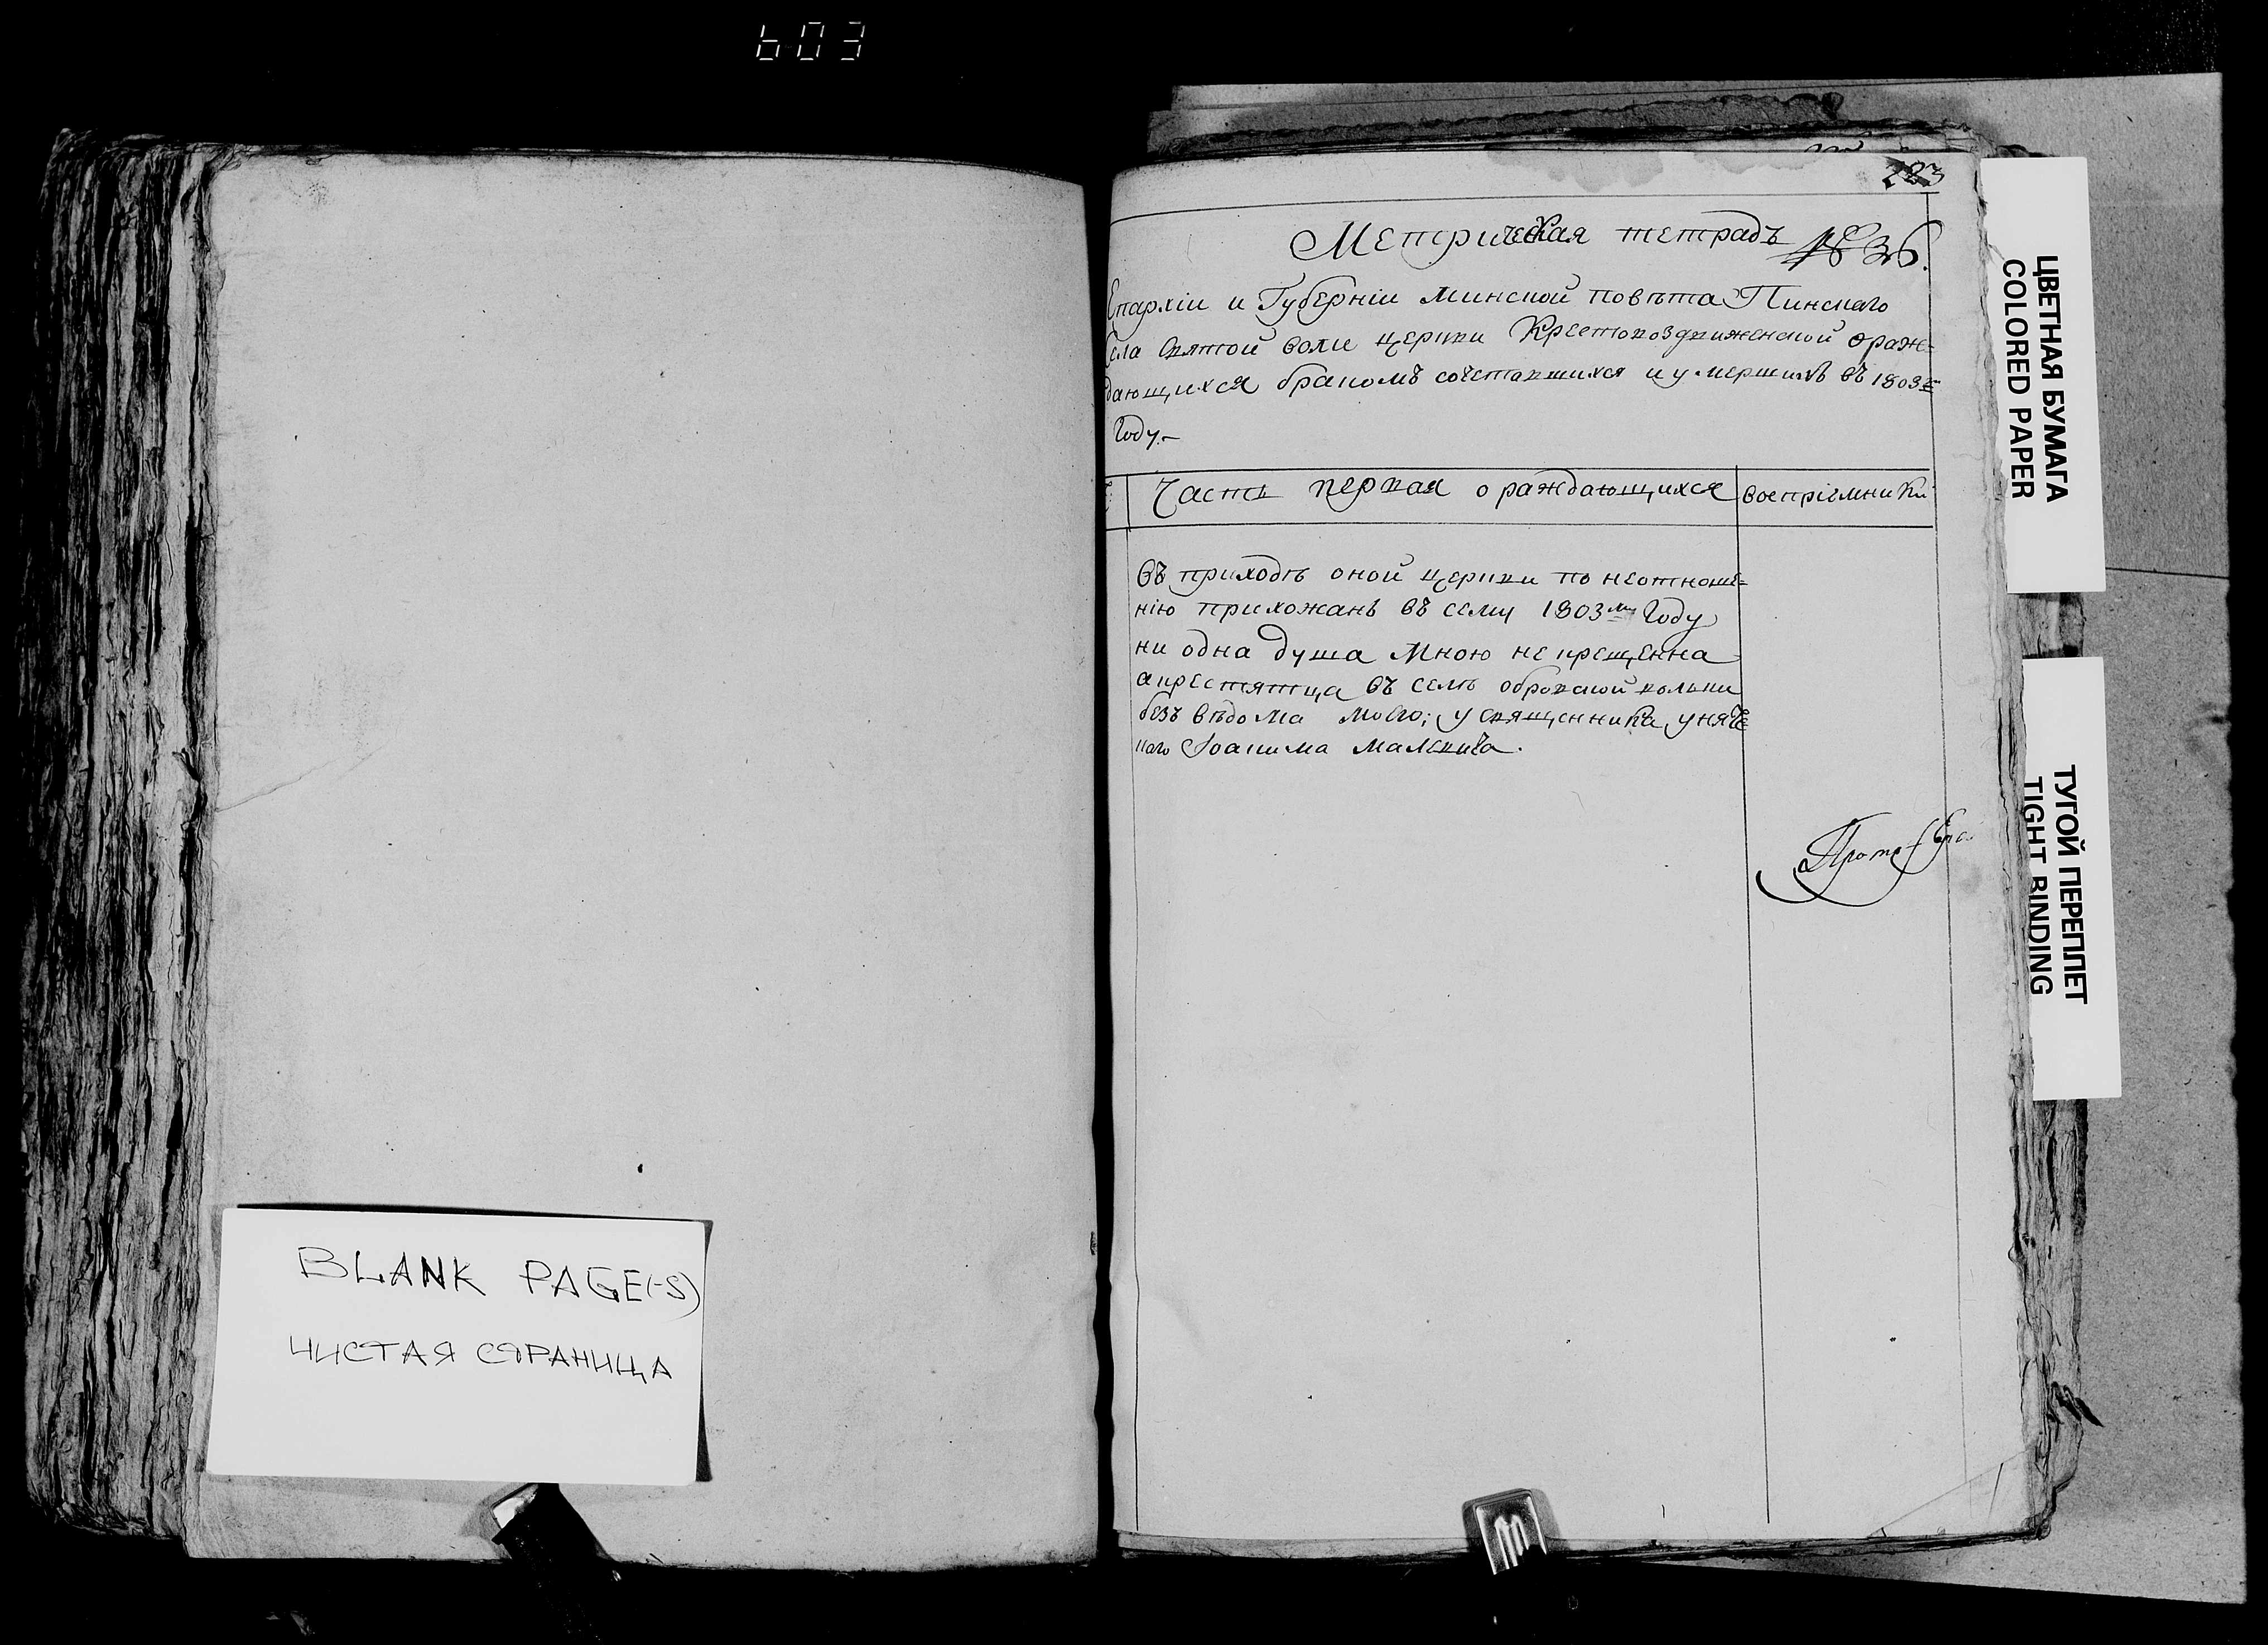 603
BLANK PAGE(-S)
ЧИСТАЯ СТРАНИЦА
283
Метрическая тетрадъ № 36.
Епархіи и Губерніи Минской повѣта Пинскаго
Села Святой воли церкви Крестовоздвиженской о раж=
дающихся бракомъ сочетавшихся и умершихъ въ 1803=
Году.-
Часть первая о раждающихся
воспріемники
въ приходѣ оной церкви по неотноше=
нію прихожанъ въ сему 1803му Году
ни одна душа Мною не крещенна
а крестятца въ селѣ обровской вольки
безъ вѣдома моего; у священника униат
каго Іоакима Малевича.
ЦВЕТНАЯ БУМАГА
COLORED PAPER
ТУГОЙ ПЕРЕПЛЕТ
TIGHT BINDING